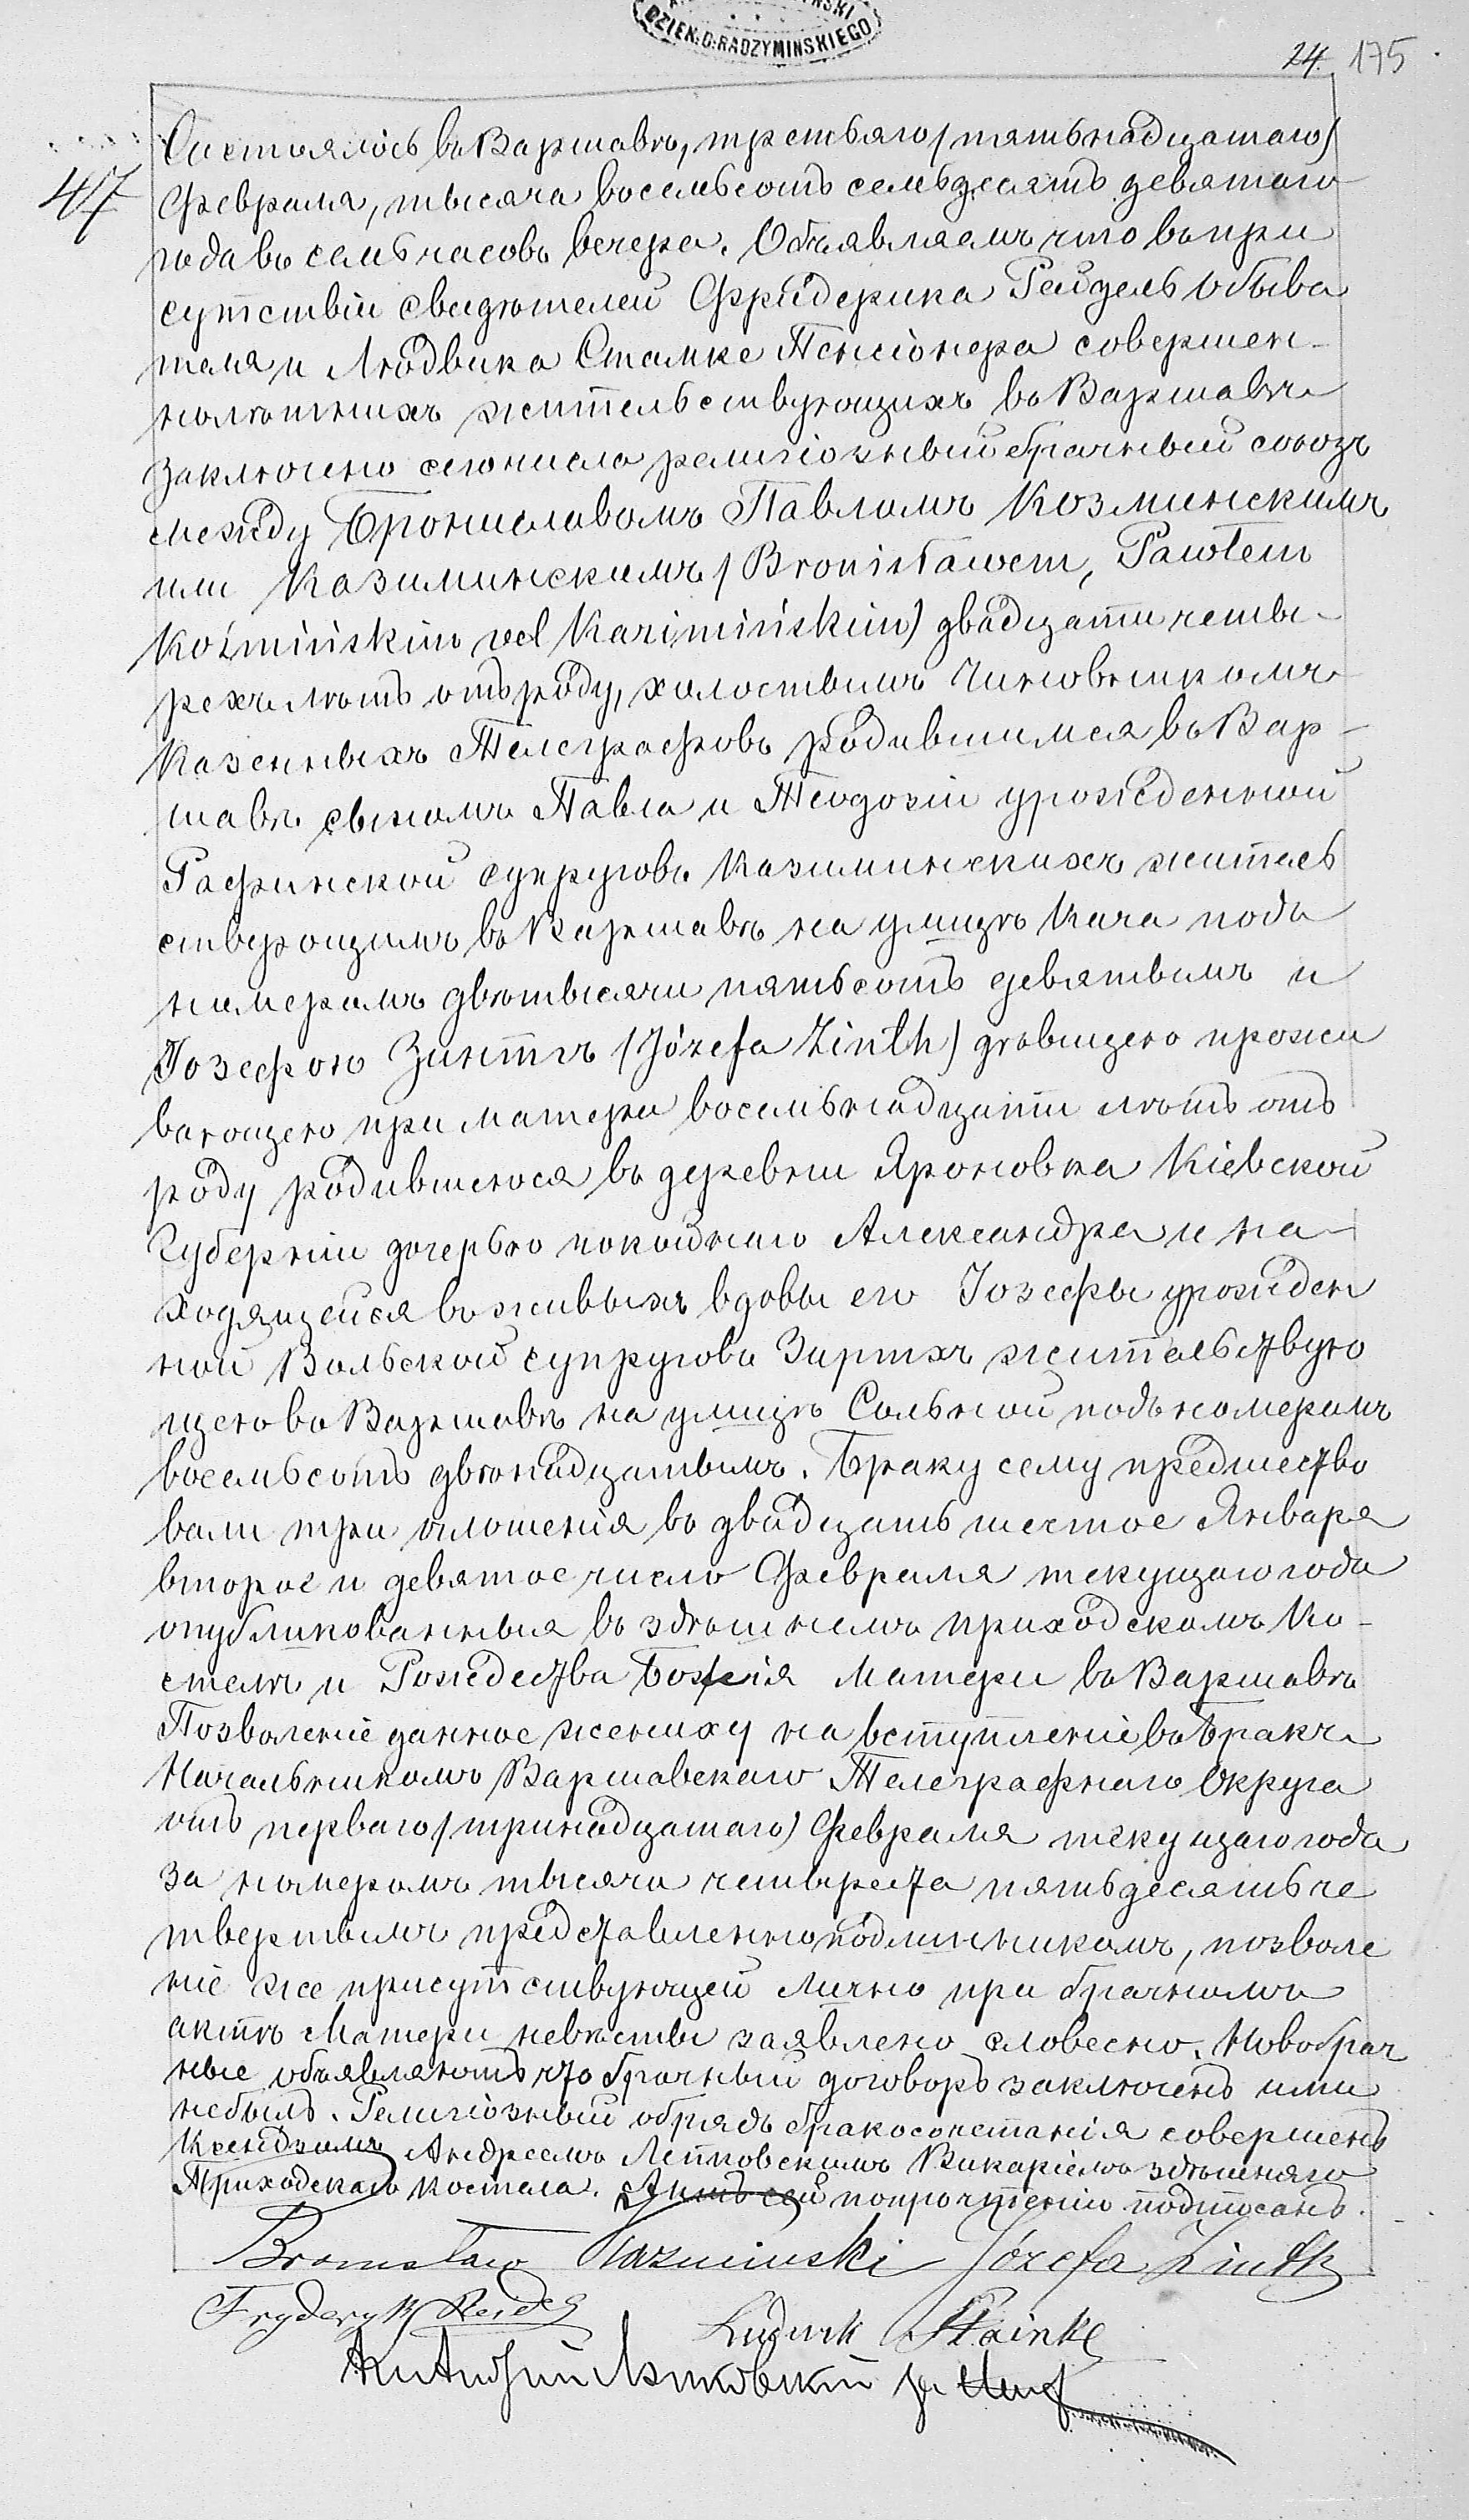 DZIEK: D: RADZYMIŃSKIEGO
24. 175
47
Состоялось въ Варшавѣ, третьяго (пятьнадцатаго)
Февраля, тысяча восемьсотъ семьдесятъ девятаго
года въ семь часовъ вечера. Объявляемъ что въ при
сутствіи свидѣтелей Фридерика Рейдель Обыва
теля и Людвика Стамке Пенсіонера совершен-
нолѣтнихъ жительствующихъ въ Варшавѣ
заключено сегочисла религіозный брачный союзъ
между Брониславомъ Павломъ Козминскимъ
или Казиминскимъ (Bronisławem, Pawłem
Koźmińskim vel Kazimińskim) двадцати четы-
рехъ лѣтъ отъ роду, холостымъ Чиновникомъ
Казенныхъ Телеграфовъ родившимся въ Вар-
шавѣ сыномъ Павла и Теодозіи урожденной
Рафинской супруговъ Казиминскихъ житель
ствующимъ въ Варшавѣ на улицѣ Кача подъ
номеромъ двѣтысячи пятьсотъ девятымъ и
Іозефою Зинтъ (Józefa Zinth) дѣвицею прожи
вающею при матери восемьнадцати лѣтъ отъ
роду родившеюся въ деревни Яроновка Кіевской
Губерніи дочерью покойнаго Александра и на-
ходящейся въ живыхъ вдовы его Іозефы урожден
ной Вольской супруговъ Зиртхъ жительствую
щею въ Варшавѣ на улицѣ Сольной подъ номеромъ
восемьсотъ двѣнадцатымъ. Браку сему предшество
вали три оглашенія въ двадцать шестое Января
второе и девятое число Февраля текущаго года
опубликованныя въ здѣшнемъ приходскомъ Ко-
стелѣ и Рождества Божія Матери въ Варшавѣ
Позволеніе данное жениху на вступленіе въ бракъ
Начальникомъ Варшавскаго Телеграфнаго Округа
отъ перваго (тринадцатаго) Февраля текущаго года
за номеромъ тысяча четыреста пятьдесятъ че
твертымъ представлено подлинникомъ, позволе
ніе же присутствующей лично при брачномъ
актѣ Матери невѣсты заявлено словесно. Новобрач
ные объявляютъ что брачный договоръ заключенъ ими
небылъ. Религіозный обрядъ бракосочетанія совершенъ
Ксендзомъ Андреемъ Лепковскимъ Викаріемъ здѣшняго
Приходскаго Костела. Актъ сей попрочтеніи подписанъ.
Bronisław Kazminski Józefa Zinth
Fryderyk Reidel
Ludwik Stainke